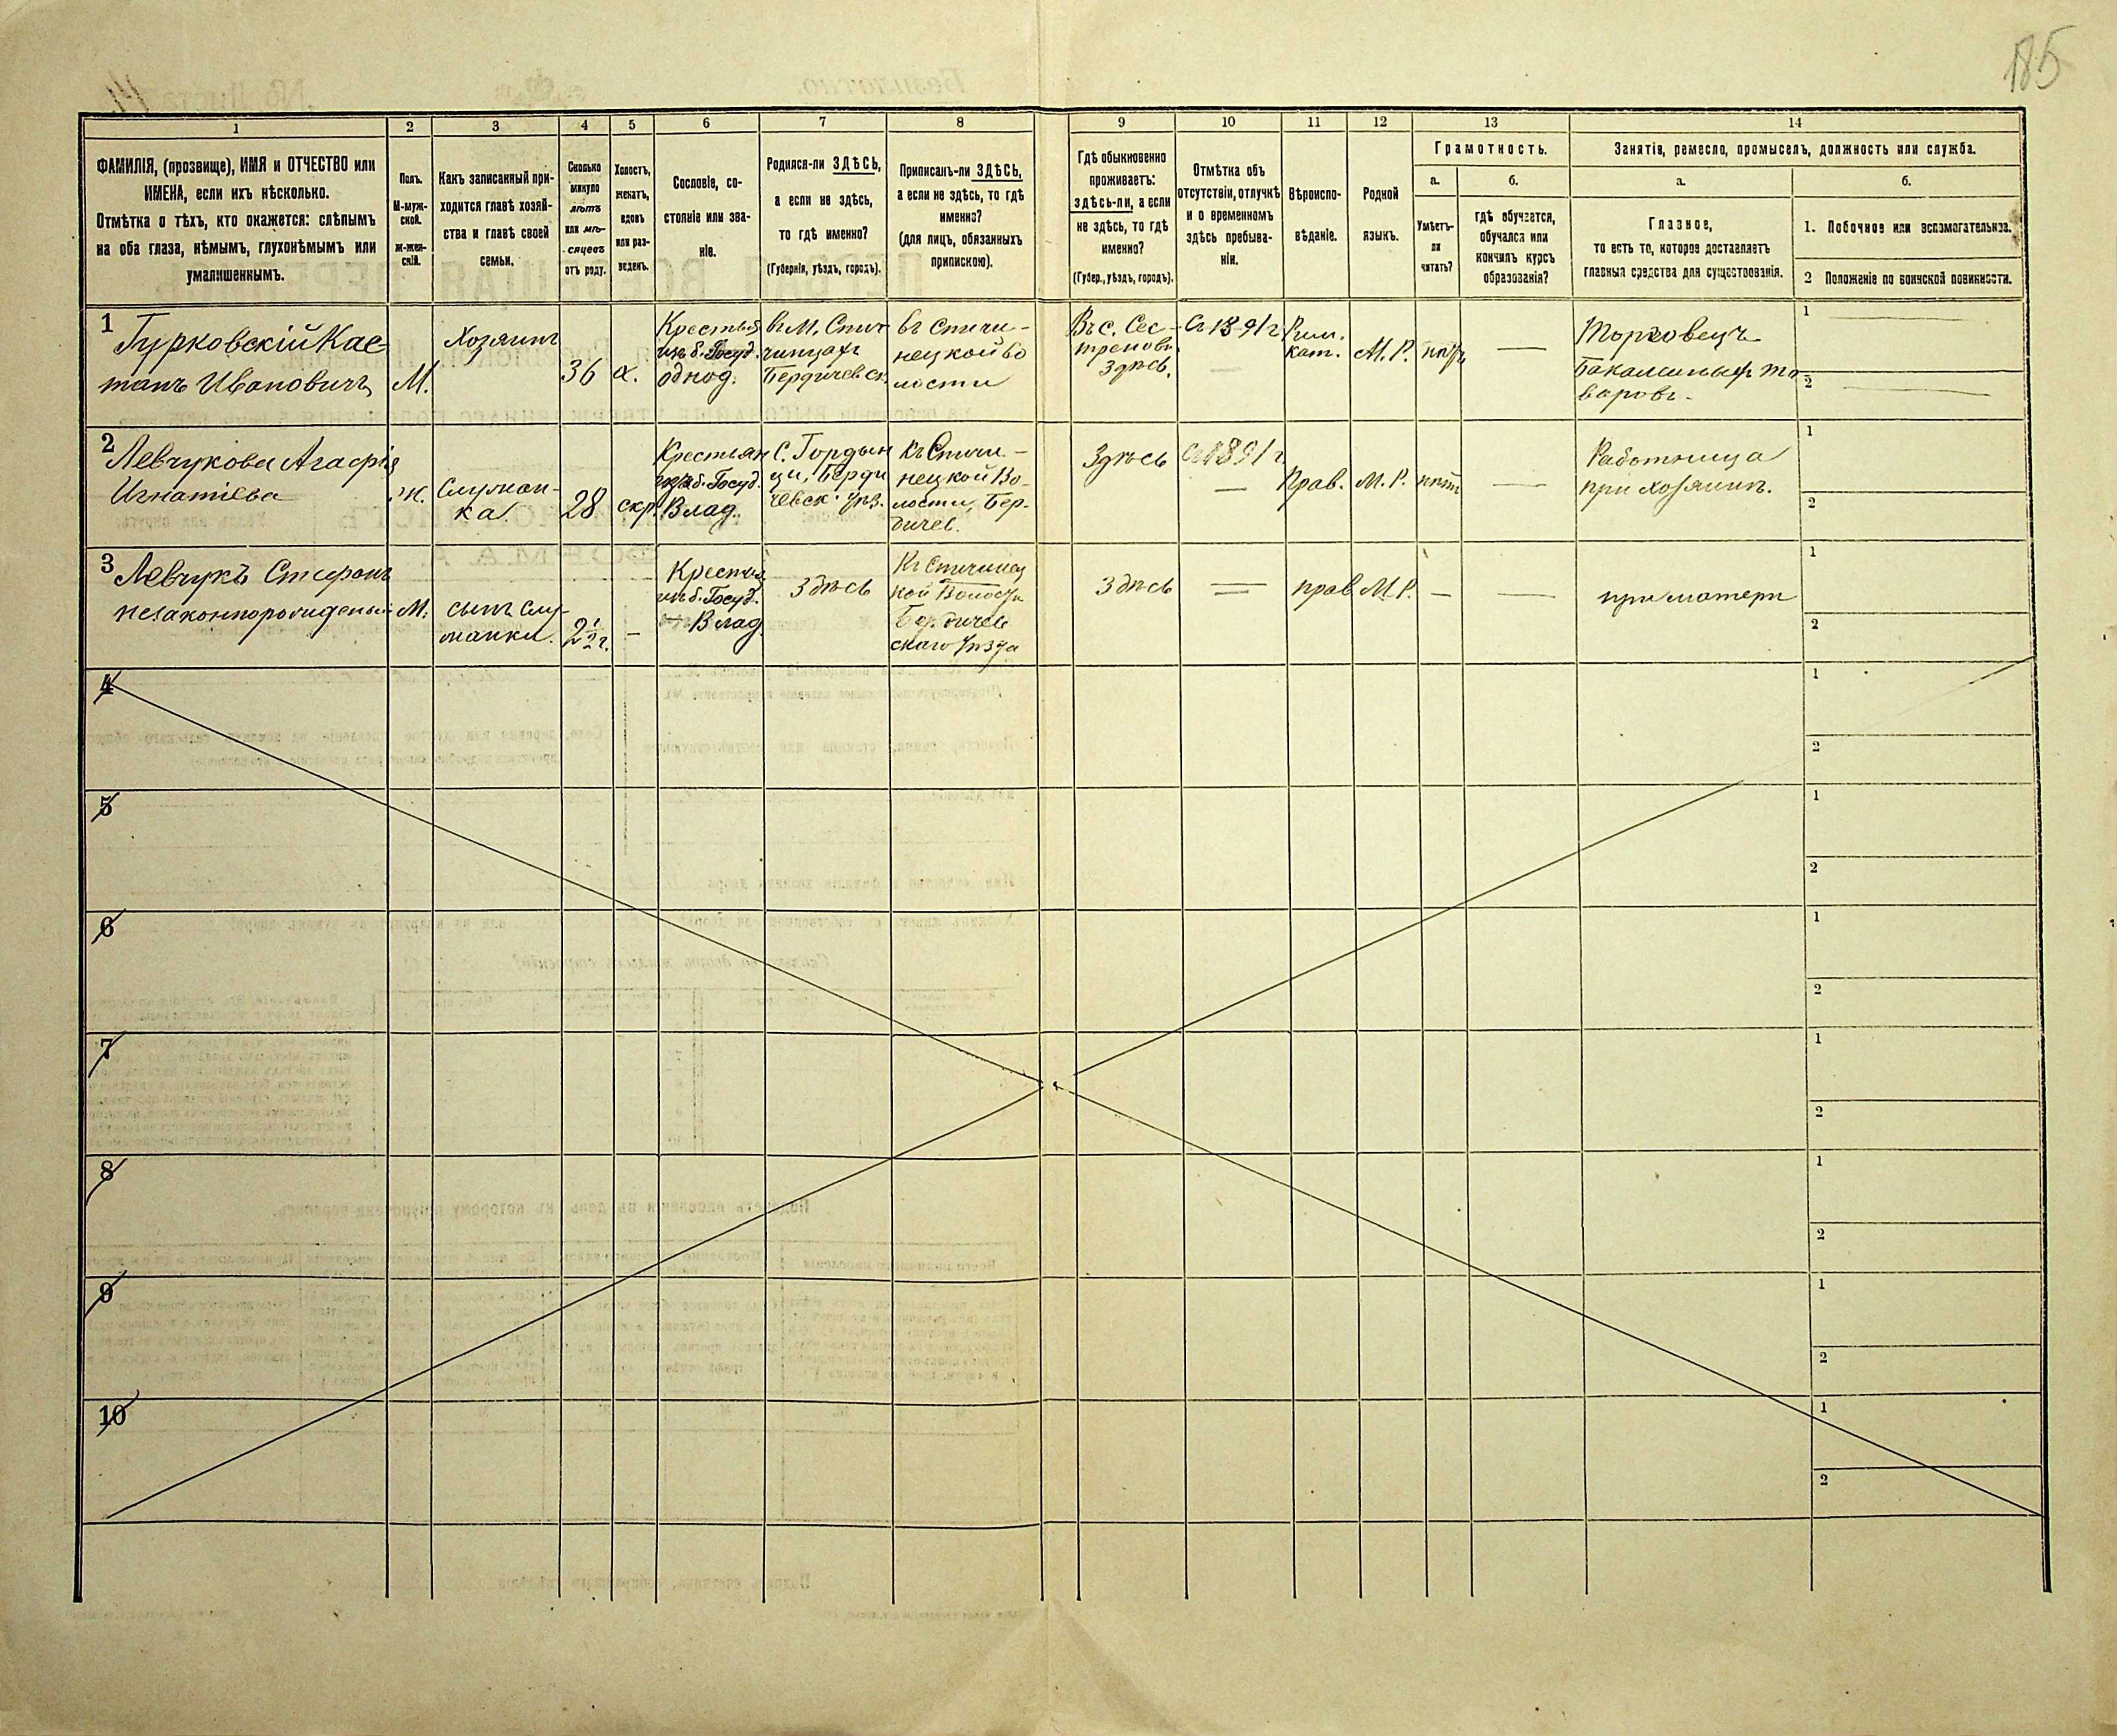 185
1
2
3
4
5
6
7
8
9
10
11
12
13
14
ФАМИЛІЯ, (прозвище), ИМЯ и ОТЧЕСТВО или
ИМЕНА, если ихъ нѣсколько.
Отмѣтка о тѣхъ, кто окажется: слѣпымъ
на оба глаза, нѣмымъ, глухонѣмымъ или
умалишеннымъ.
Полъ.
М-муж-
ской.
ж-жен-
скій.
Какъ записанный при-
ходится главѣ хозяй-
ства и главѣ своей
семьи.
Сколько
минуло
лѣтъ
или мѣ-
сяцевъ
отъ роду.
Холостъ,
женатъ,
вдовъ
или раз-
веденъ.
Сословіе, со-
стояніе или зва-
ніе.
Родился-ли ЗДѢСЬ,
а если не здѣсь,
то гдѣ именно?
(Губернія, уѣздъ, городъ).
Приписанъ-ли ЗДѢСЬ,
а если не здѣсь, то гдѣ
именно?
(для лицъ, обязанныхъ
припискою).
Гдѣ обыкновенно
проживаетъ:
здѣсь-ли, а если
не здѣсь, то гдѣ
именно?
(Губер., уѣздъ, городъ).
Отмѣтка объ
отсутствіи, отлучкѣ
и о временномъ
здѣсь пребыва-
ніи.
Вѣроиспо-
вѣданіе.
Родной
языкъ.
Грамотность.
а.
б.
Умѣетъ-
ли
читать?
гдѣ обучается,
обучался или
кончилъ курсъ
образованія?
Занятія, ремесло, промыселъ, должность или служба.
а.
б.
Главное,
то есть то, которое доставляетъ
главныя средства для существованія.
1. Побочное или вспомогательное.
2 Положеніе по воинской повинности.
1
Гурковскій Кае-
танъ Ивановичъ
М.
Хозяинъ
36
х.
Крестья
изъ б. Госуд.
однод.
въ М. Спич
чинцахъ
Бердичевск.
въ Спичи-
нецкой во
лости
Въ с. Сес-
треновк
Здѣсь.
Съ 1891 г
Рим.
кат.
М. Р.
нѣтъ
—
Торговецъ
Бакалейныхъ то-
варовъ.
1
2
2
Левчукова Агафія
Игнатіева
Ж.
Служан-
ка
28
Крестьян
изъ б. Госуд.
Влад.
С. Гордын
цы, Берди
чевск. уѣз.
Къ Спичи-
нецкой Во-
лости, Бер-
дичев.
Здѣсь
Съ 1891 г
—
Прав.
М. Р.
нѣтъ
—
Работница
при хозяинѣ.
1
2
3
Левчукъ Стефанъ
незаконнорожденный
М.
сынъ слу-
жанки.
2 1/2 г.
—
Крестья
изъ б. Госуд.
Влад
Здѣсь
Къ Спичинец
кой Волости
Бердичев
скаго Уѣзда
Здѣсь
—
прав
М. Р.
—
—
при матери
1
2
4
1
2
5
1
2
6
1
2
7
1
2
8
1
2
9
1
2
10
1
2